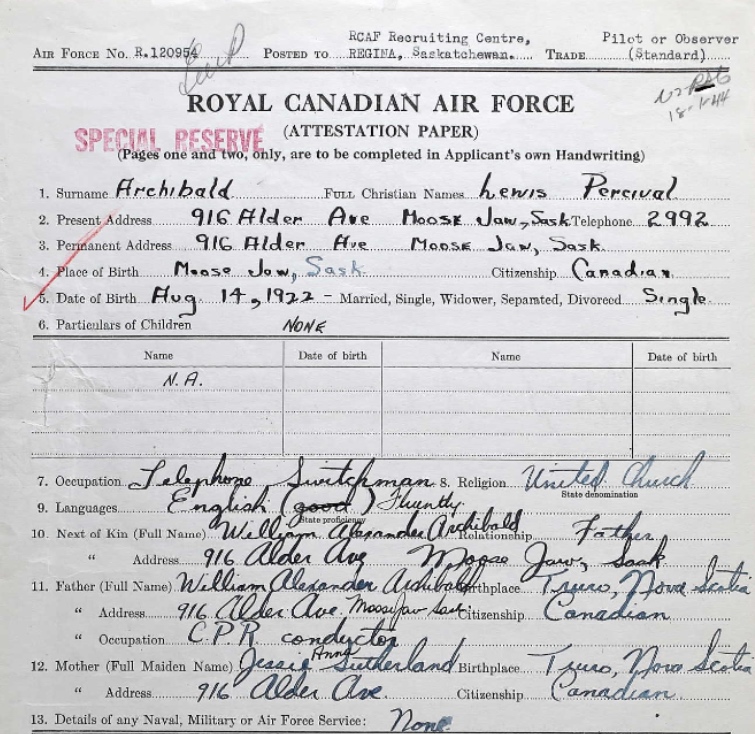 AIR FORCE No. R.120954 POSTED TO RCAF Recruiting Centre, REGINA, Saskatchewan. TRADE Pilot or Observer (Standard)
18-1-44
ROYAL CANADIAN AIR FORCE
SPECIAL RESERVE
(ATTESTATION PAPER)
(Pages one and two, only, are to be completed in Applicant's own Handwriting)
1. Surname Archibald FULL Christian Names Lewis Percival
2. Present Address 916 Alder Ave Moose Jaw, Sask Telephone 2992
3. Permanent Address 916 Alder Ave Moose Jaw, Sask.
4. Place of Birth Moose Jaw, Sask. Citizenship Canadian
5. Date of Birth Aug 14, 1922 - Married, Single, Widower, Separated, Divorced Single
6. Particulars of Children NONE
Name Date of birth Name Date of birth
N.A.
7. Occupation Telephone Switchman 8. Religion United Church
State denomination
9. Languages English (good) Fluently
State proficiency
10. Next of Kin (Full Name) William Alexander Archibald Relationship Father
" Address 916 Alder Ave Moose Jaw, Sask
11. Father (Full Name) William Alexander Archibald Birthplace Truro, Nova Scotia
" Address 916 Alder Ave. Moose Jaw Sask. Citizenship Canadian
" Occupation C.P.R conductor
12. Mother (Full Maiden Name) Jessie Anna Sutherland Birthplace Truro, Nova Scotia
" Address 916 Alder Ave. Citizenship Canadian
13. Details of any Naval, Military or Air Force Service: None.